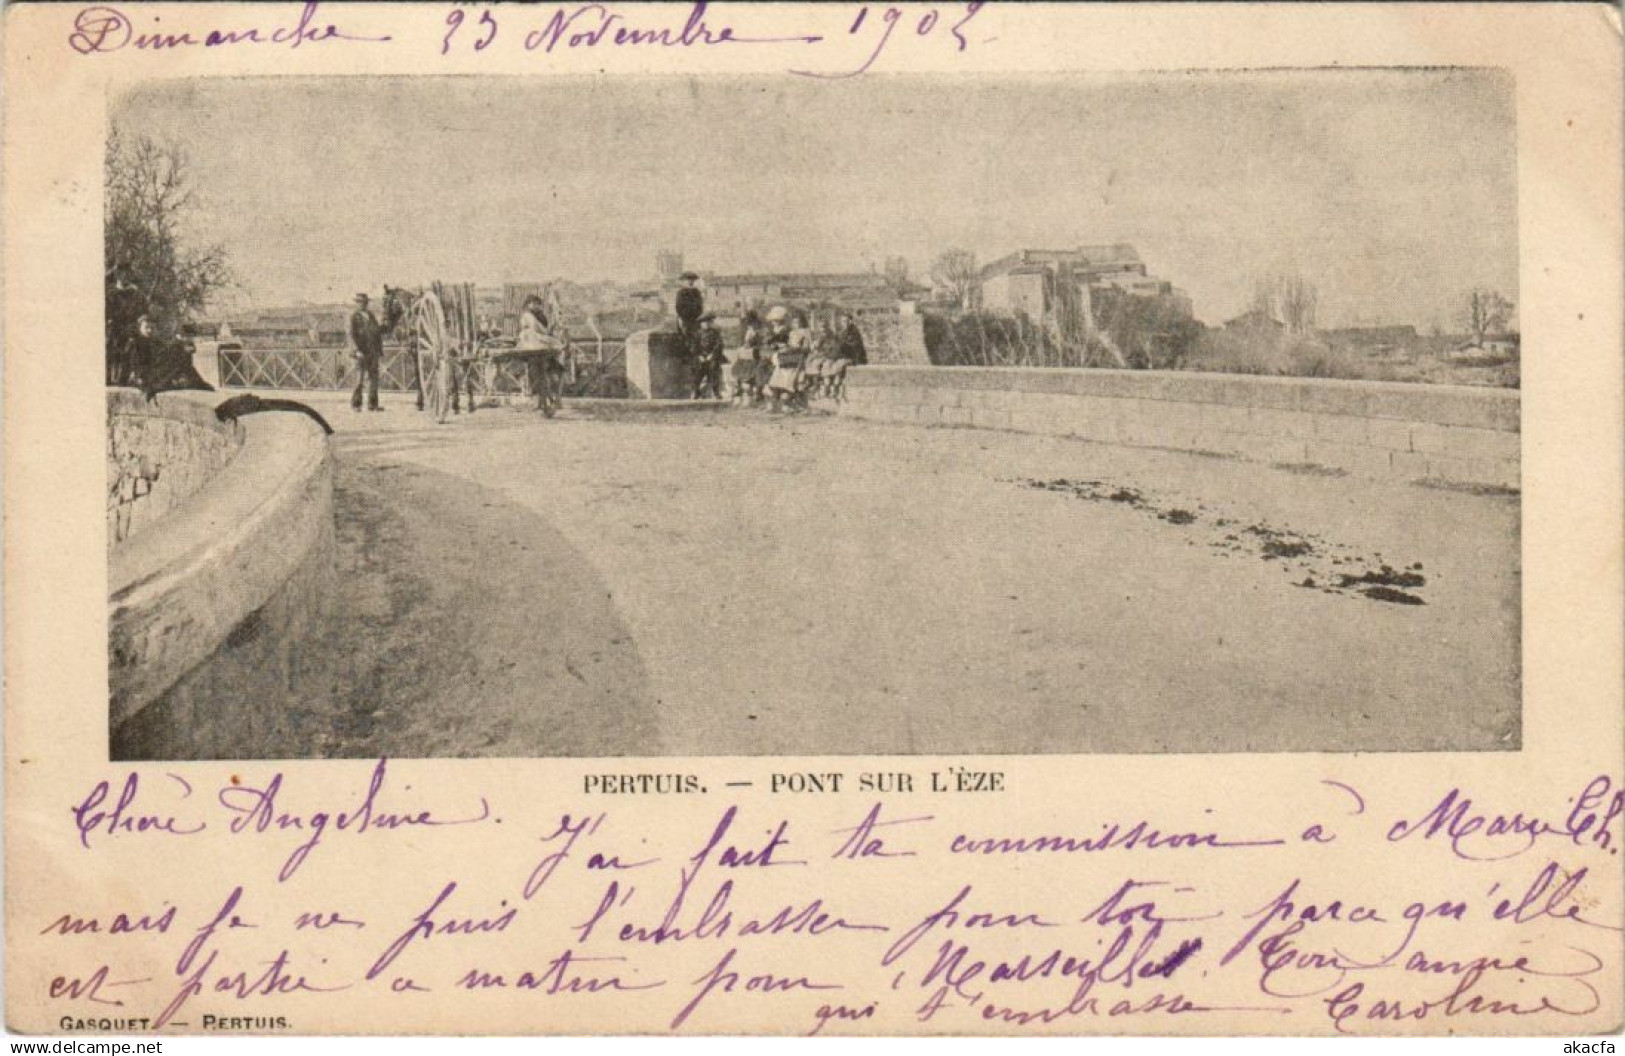 Dimanche 23 Novembre 1902
PERTUIS. — PONT SUR L'ÈZE
Chère Angeline. J'ai fait ta commission à Marie Ch.
mais je ne puis l'embrasser pour toi parce qu'elle
est partie ce matin pour Marseille. Ton amie
qui t'embrasse Caroline
GASQUET. — PERTUIS.
akacfa